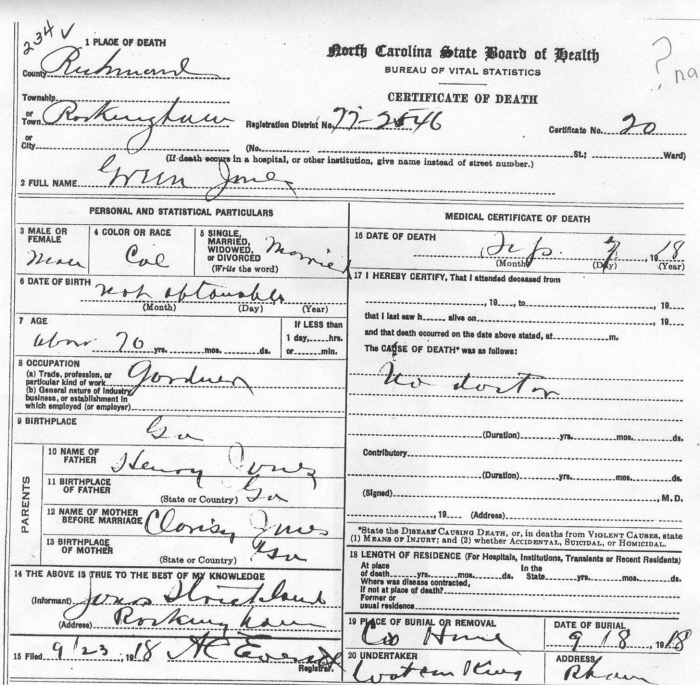 234 ✓
1 PLACE OF DEATH
County Richmond
North Carolina State Board of Health
BUREAU OF VITAL STATISTICS
CERTIFICATE OF DEATH
? na
Township
or
Town Rockingham
Registration District No. 77-2546
Certificate No. 20
or
City
(No. St.; Ward)
(If death occurs in a hospital, or other institution, give name instead of street number.)
2 FULL NAME Green Jones
PERSONAL AND STATISTICAL PARTICULARS
3 MALE OR FEMALE Male
4 COLOR OR RACE Col
5 SINGLE, MARRIED, WIDOWED, or DIVORCED (Write the word) Married
6 DATE OF BIRTH not obtainable
(Month) (Day) (Year)
7 AGE about 70 yrs. mos. ds.
If LESS than 1 day, hrs. or min.
8 OCCUPATION
(a) Trade, profession, or
particular kind of work Gardner
(b) General nature of industry
business, or establishment in
which employed (or employer)
9 BIRTHPLACE Ga
PARENTS
10 NAME OF FATHER Henry Jones
11 BIRTHPLACE OF FATHER (State or Country) Ga
12 NAME OF MOTHER BEFORE MARRIAGE Clorisy Jones
13 BIRTHPLACE OF MOTHER (State or Country) Ga
14 THE ABOVE IS TRUE TO THE BEST OF MY KNOWLEDGE
(Informant) Strickland
(Address) Rockingham
15 Filed 9/23, 1918
Registrar.
MEDICAL CERTIFICATE OF DEATH
16 DATE OF DEATH Sep 7, 1918
(Month) (Day) (Year)
17 I HEREBY CERTIFY, That I attended deceased from
, 19 , to , 19
that I last saw h alive on , 19
and that death occurred on the date above stated, at m.
The CAUSE OF DEATH* was as follows:
No doctor
(Duration) yrs. mos. ds.
Contributory
(Duration) yrs. mos. ds.
(Signed) , M.D.
, 19 (Address)
*State the DISEASE CAUSING DEATH, or, in deaths from VIOLENT CAUSES, state
(1) MEANS OF INJURY; and (2) whether ACCIDENTAL, SUICIDAL, OR HOMICIDAL.
18 LENGTH OF RESIDENCE (For Hospitals, Institutions, Transients or Recent Residents)
At place of death yrs. mos. ds. In the State yrs. mos. ds.
Where was disease contracted,
if not at place of death?
Former or
usual residence
19 PLACE OF BURIAL OR REMOVAL Co Home
DATE OF BURIAL 9/8, 1918
20 UNDERTAKER Watson King
ADDRESS Rham